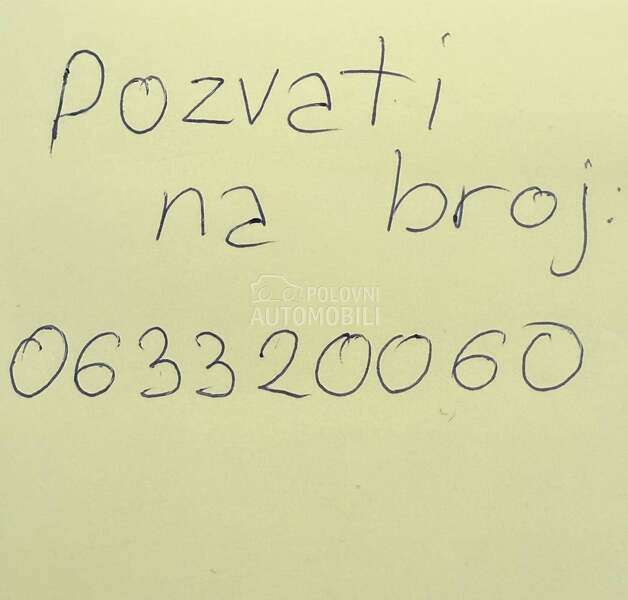 Pozvati
na broj:
POLOVNI
AUTOMOBILI
063320060